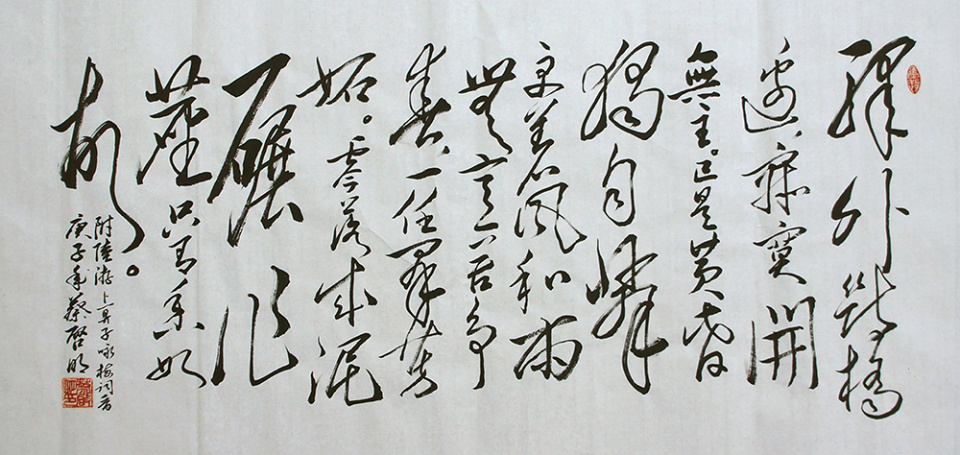 驛外斷橋
邊、寂寞開
無主。已是黄昏
獨自愁
更著風和雨
無意苦争
春、一任羣芳
妒。零落成泥
碾作
塵只有香如
故。
陸游卜算子咏梅词
庚子年蔡啓明